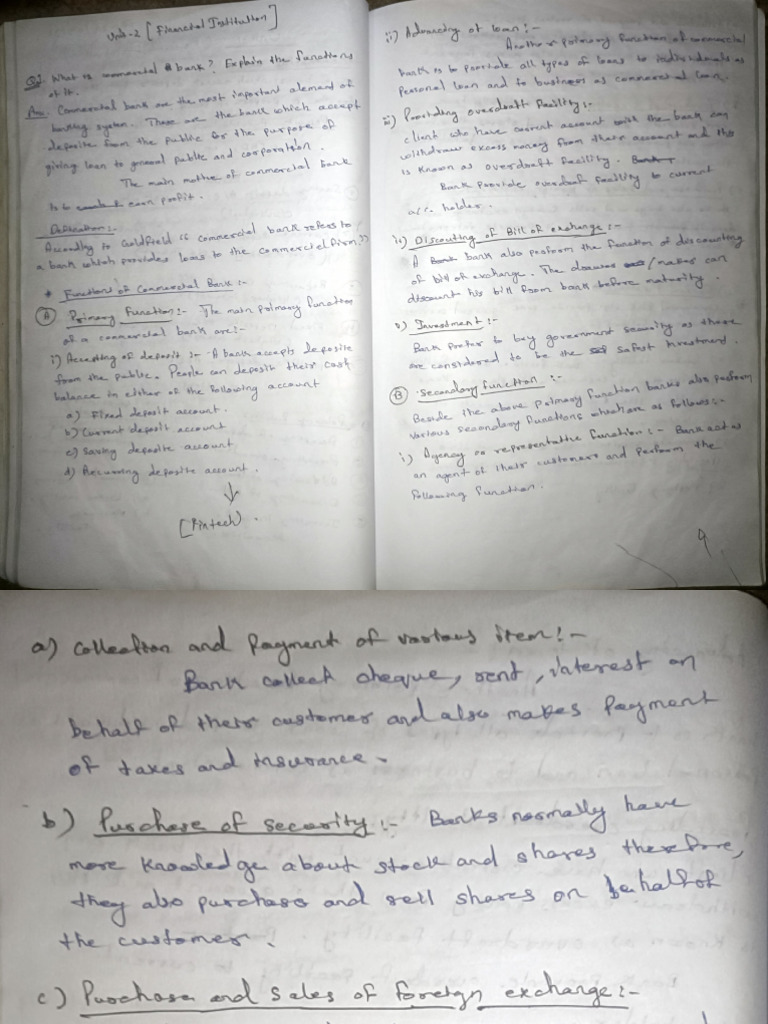 Unit-2 [Financial Institution]
Q1. What is commercial bank? Explain the functions
of it.
Ans. Commercial bank are the most important element of
banking system. These are the bank which accept
deposite from the public for the purpose of
giving loan to general public and corporation.
The main motive of commercial bank
is to earn profit.
Definition:-
According to Goldfield "commercial bank refers to
a bank which provides loans to the commercial firm."
* Function of Commercial Bank :-
(A) Primary Function:- The main primary function
of a commercial bank are:-
i) Accepting of deposit :- A bank accepts deposite
from the public. People can deposit their cash
balance in either of the following account
a) Fixed deposit account.
b) Current deposit account
c) Saving deposite account
d) Recurring deposite account.
↓
[Fintech].
ii) Advancing of loan:-
Another primary function of commercial
bank is to provide all types of loans to individuals as
personal loan and to business as commercial loan.
iii) Providing overdraft facility:-
client who have current account with the bank can
withdraw excess money from their account and this
is known as overdraft facility.
Bank provide overdraf facility to current
a/c. holder.
iv) Discouting of Bill of exchange:-
A bank also perform the function of discounting
of bill of exchange. The drawer /maker can
discount his bill from bank before maturity.
v) Investment :-
Bank prefer to buy government security as these
are considered to be the safest investment.
(B) Secondary function :-
Beside the above primary function banks also perform
various secondary functions which are as follows:-
i) Agency or representative function :- Bank act as
an agent of their customers and perform the
following function.
9
a) Collection and Payment of various item:-
Bank collect cheque, rent, interest on
behalf of their customer and also makes payment
of taxes and insurance.
b) Purchase of security:- Banks normally have
more knowledge about stock and shares therefore,
they also purchase and sell shares on behalf of
the customer.
c) Purchase and Sales of foreign exchange:-